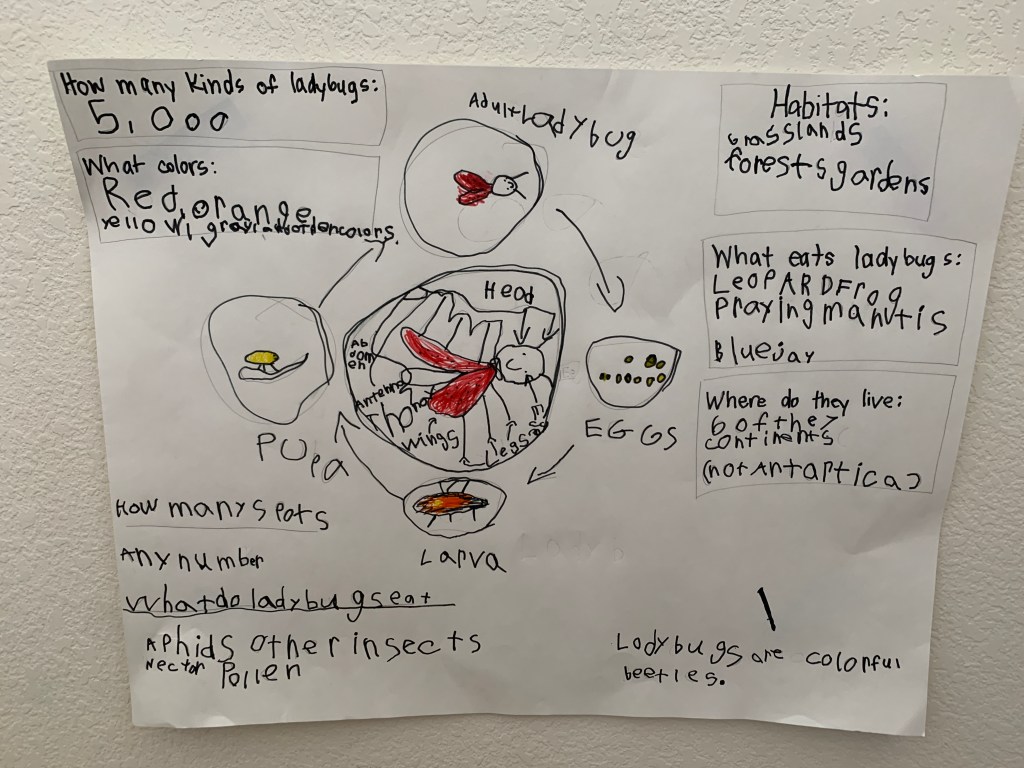 How many kinds of ladybugs:
5,000
What colors:
Red, orange
Adult Ladybug
Habitats:
Grasslands
forests gardens
What eats ladybugs:
LeoPARD Frog
Praying manutis
Bluejay
Where do they live:
6 of the 7
continents
(not Antartica)
Head
Ab
dom
en
Antenns
wings
legs
EGGS
Larva
PUpa
How many spots
Any number
What do ladybugs eat
APhids other insects
Nectar Pollen
Ladybugs are colorful
beetles.